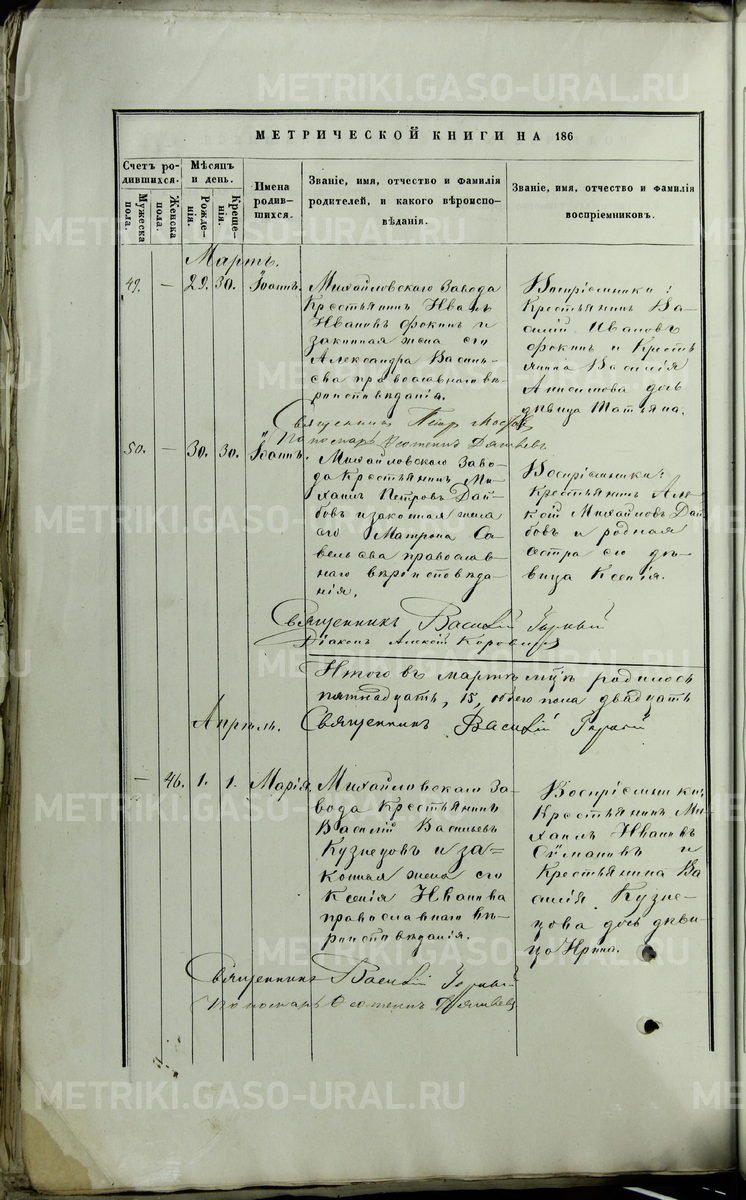 МЕТРИЧЕСКОЙ КНИГИ НА 186
Счетъ ро-
дившихся.
Мужеска
пола.
Женска
пола.
Мѣсяцъ
и день.
Рожде-
нія.
Креще-
нія.
Имена
родив-
шихся.
Званіе, имя, отчество и фамилія
родителей, и какого вѣроиспо-
вѣданія.
Званіе, имя, отчество и фамилія
воспріемниковъ.
Мартъ.
49. — 29. 30. Іоаннъ.
Михайловскаго Завода
Крестьянинъ Иванъ
Ивановъ Фокинъ и
законная жена его
Александра Василь-
ева православнаго вѣ-
роисповѣданія.
Воспріемники:
Крестьянинъ Ва-
силій Ивановъ
Фокинъ и Кресть
янина Василія
Анисимова дочь
дѣвица Татьяна.
Священникъ Петръ
Пономарь
50. — 30. 30. Іоаннъ.
Михайловскаго Заво-
да Крестьянинъ Ми-
хаилъ Петровъ Дай-
бовъ и законная жена
его Матрона Са-
вельева православ-
наго вѣроисповѣда-
нія.
Воспріемники:
Крестьянинъ Але-
ксѣй Михайловъ Дай-
бовъ и родная
сестра его дѣ-
вица Ксенія.
Священникъ Василій
Діаконъ Алексій Коровинъ
Итого въ мартѣ муж родилось
пятнадцать, 15, обоего пола двадцать
Апрѣль.
Священникъ Василій
— 46. 1. 1. Марія.
Михайловскаго За-
вода Крестьянинъ
Василій Васильевъ
Кузнецовъ и за-
конная жена его
Ксенія Иванова
православнаго вѣ-
роисповѣданія.
Воспріемники:
Крестьянинъ Ми-
хаилъ Ивановъ
и
Крестьянина Ва-
силія Кузне-
цова дочь дѣви-
ца Ирина.
Священникъ Василій
Пономарь
METRIKI.GASO-URAL.RU